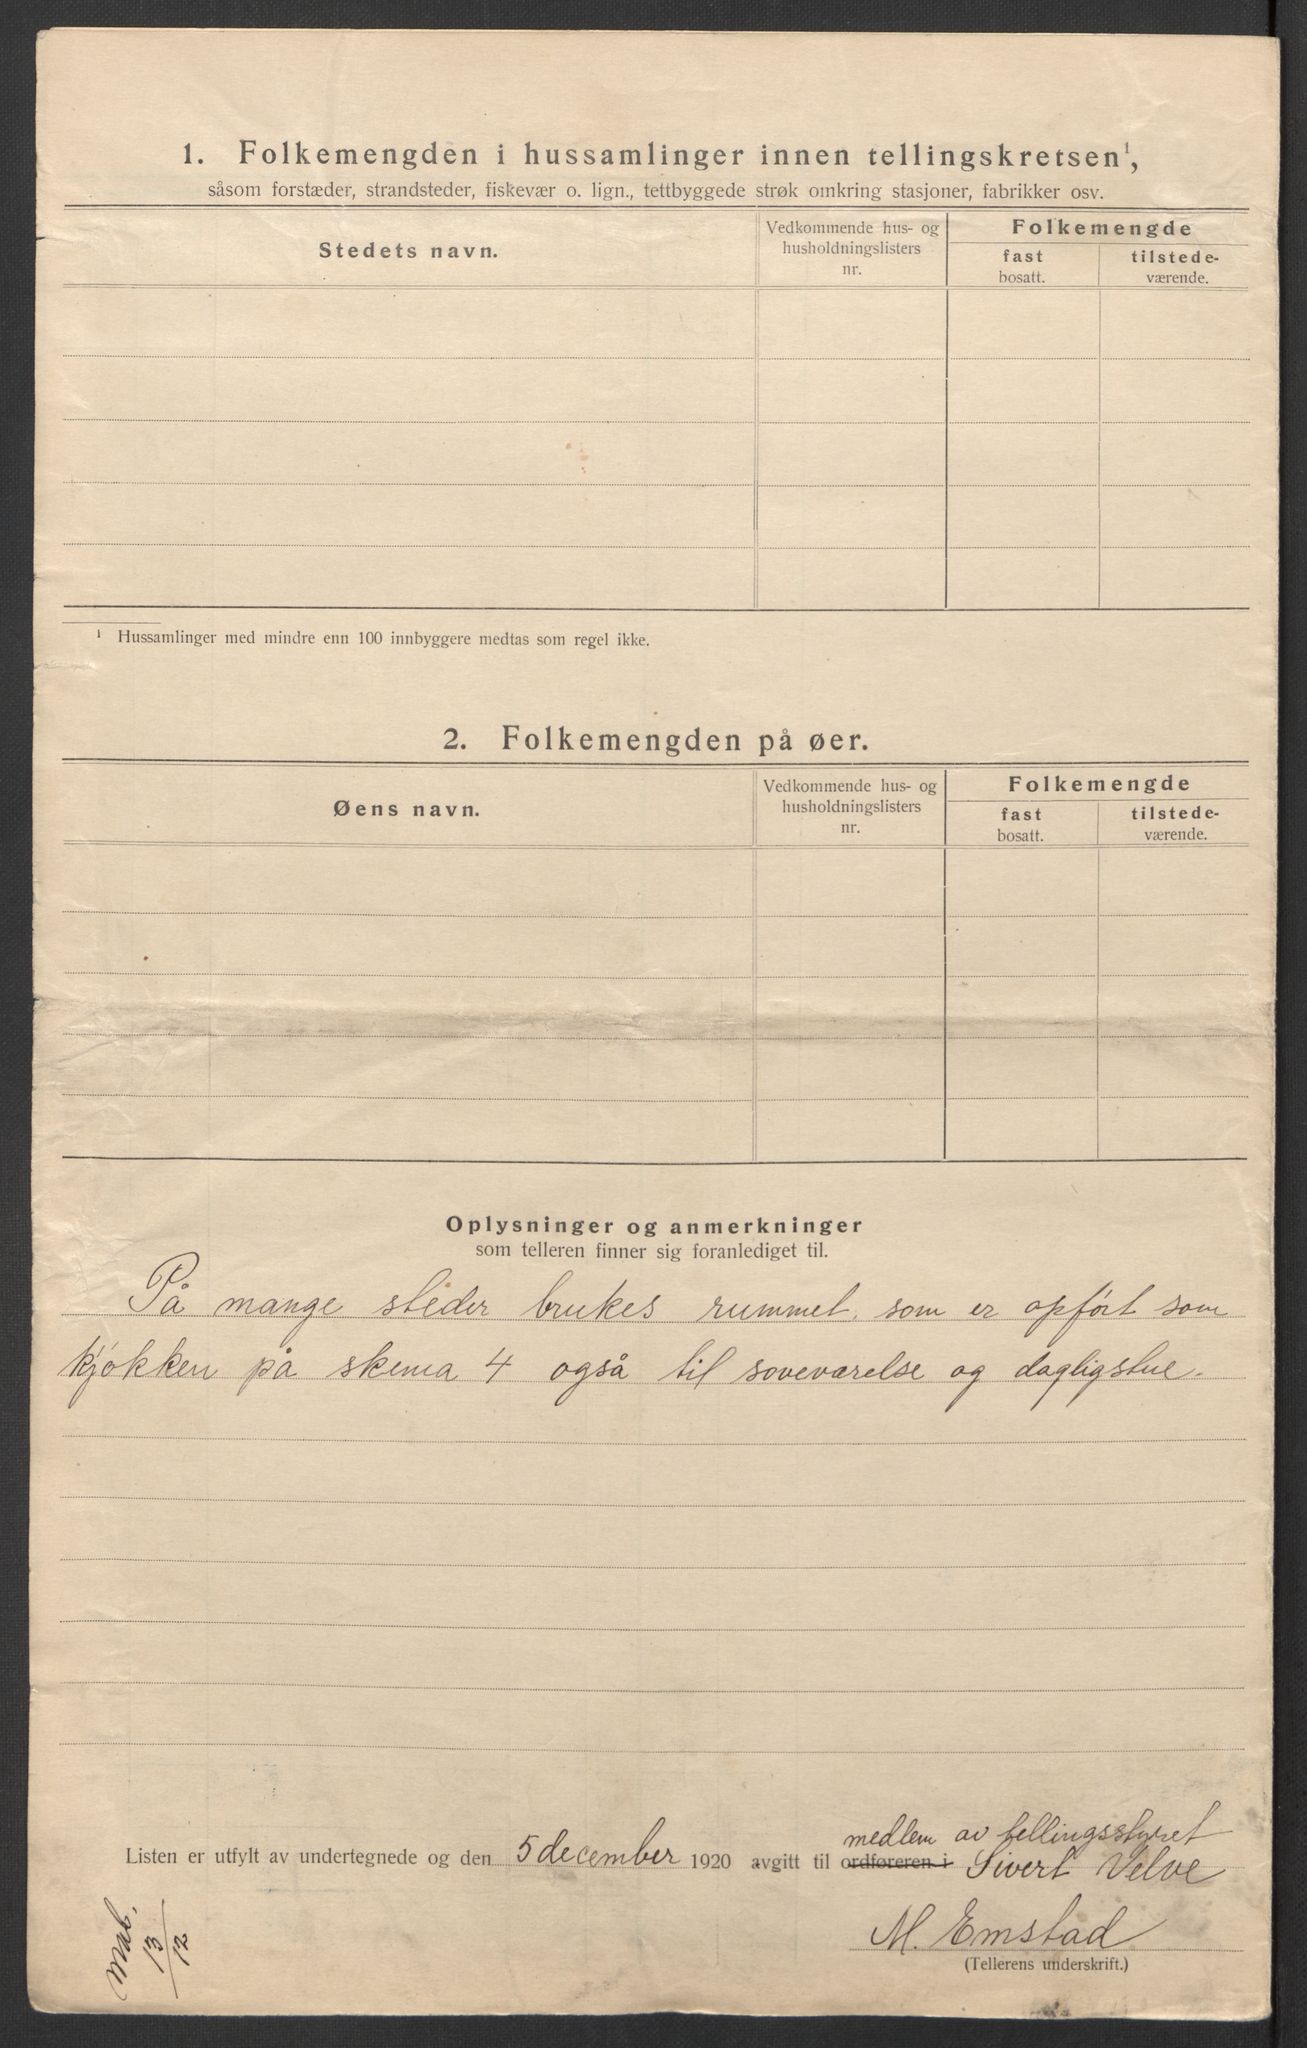 1. Folkemengden i hussamlinger innen tellingskretsen¹,
såsom forstæder, strandsteder, fiskevær o. lign., tettbyggede strøk omkring stasjoner, fabrikker osv.
Stedets navn.
Vedkommende hus- og
husholdningslisters
nr.
Folkemengde
fast
bosatt.
tilstede-
værende.
¹ Hussamlinger med mindre enn 100 innbyggere medtas som regel ikke.
2. Folkemengden på øer.
Øens navn.
Vedkommende hus- og
husholdningslisters
nr.
Folkemengde
fast
bosatt.
tilstede-
værende.
Oplysninger og anmerkninger
som telleren finner sig foranlediget til.
På mange steder brukes rummet, som er opført som
kjøkken på skema 4 også til soveværelse og dagligstue.
medlem av tellingsstyret
Listen er utfylt av undertegnede og den 5 december 1920 avgitt til ordføreren i Sivert Velve
M. Emstad
(Tellerens underskrift.)
13/12